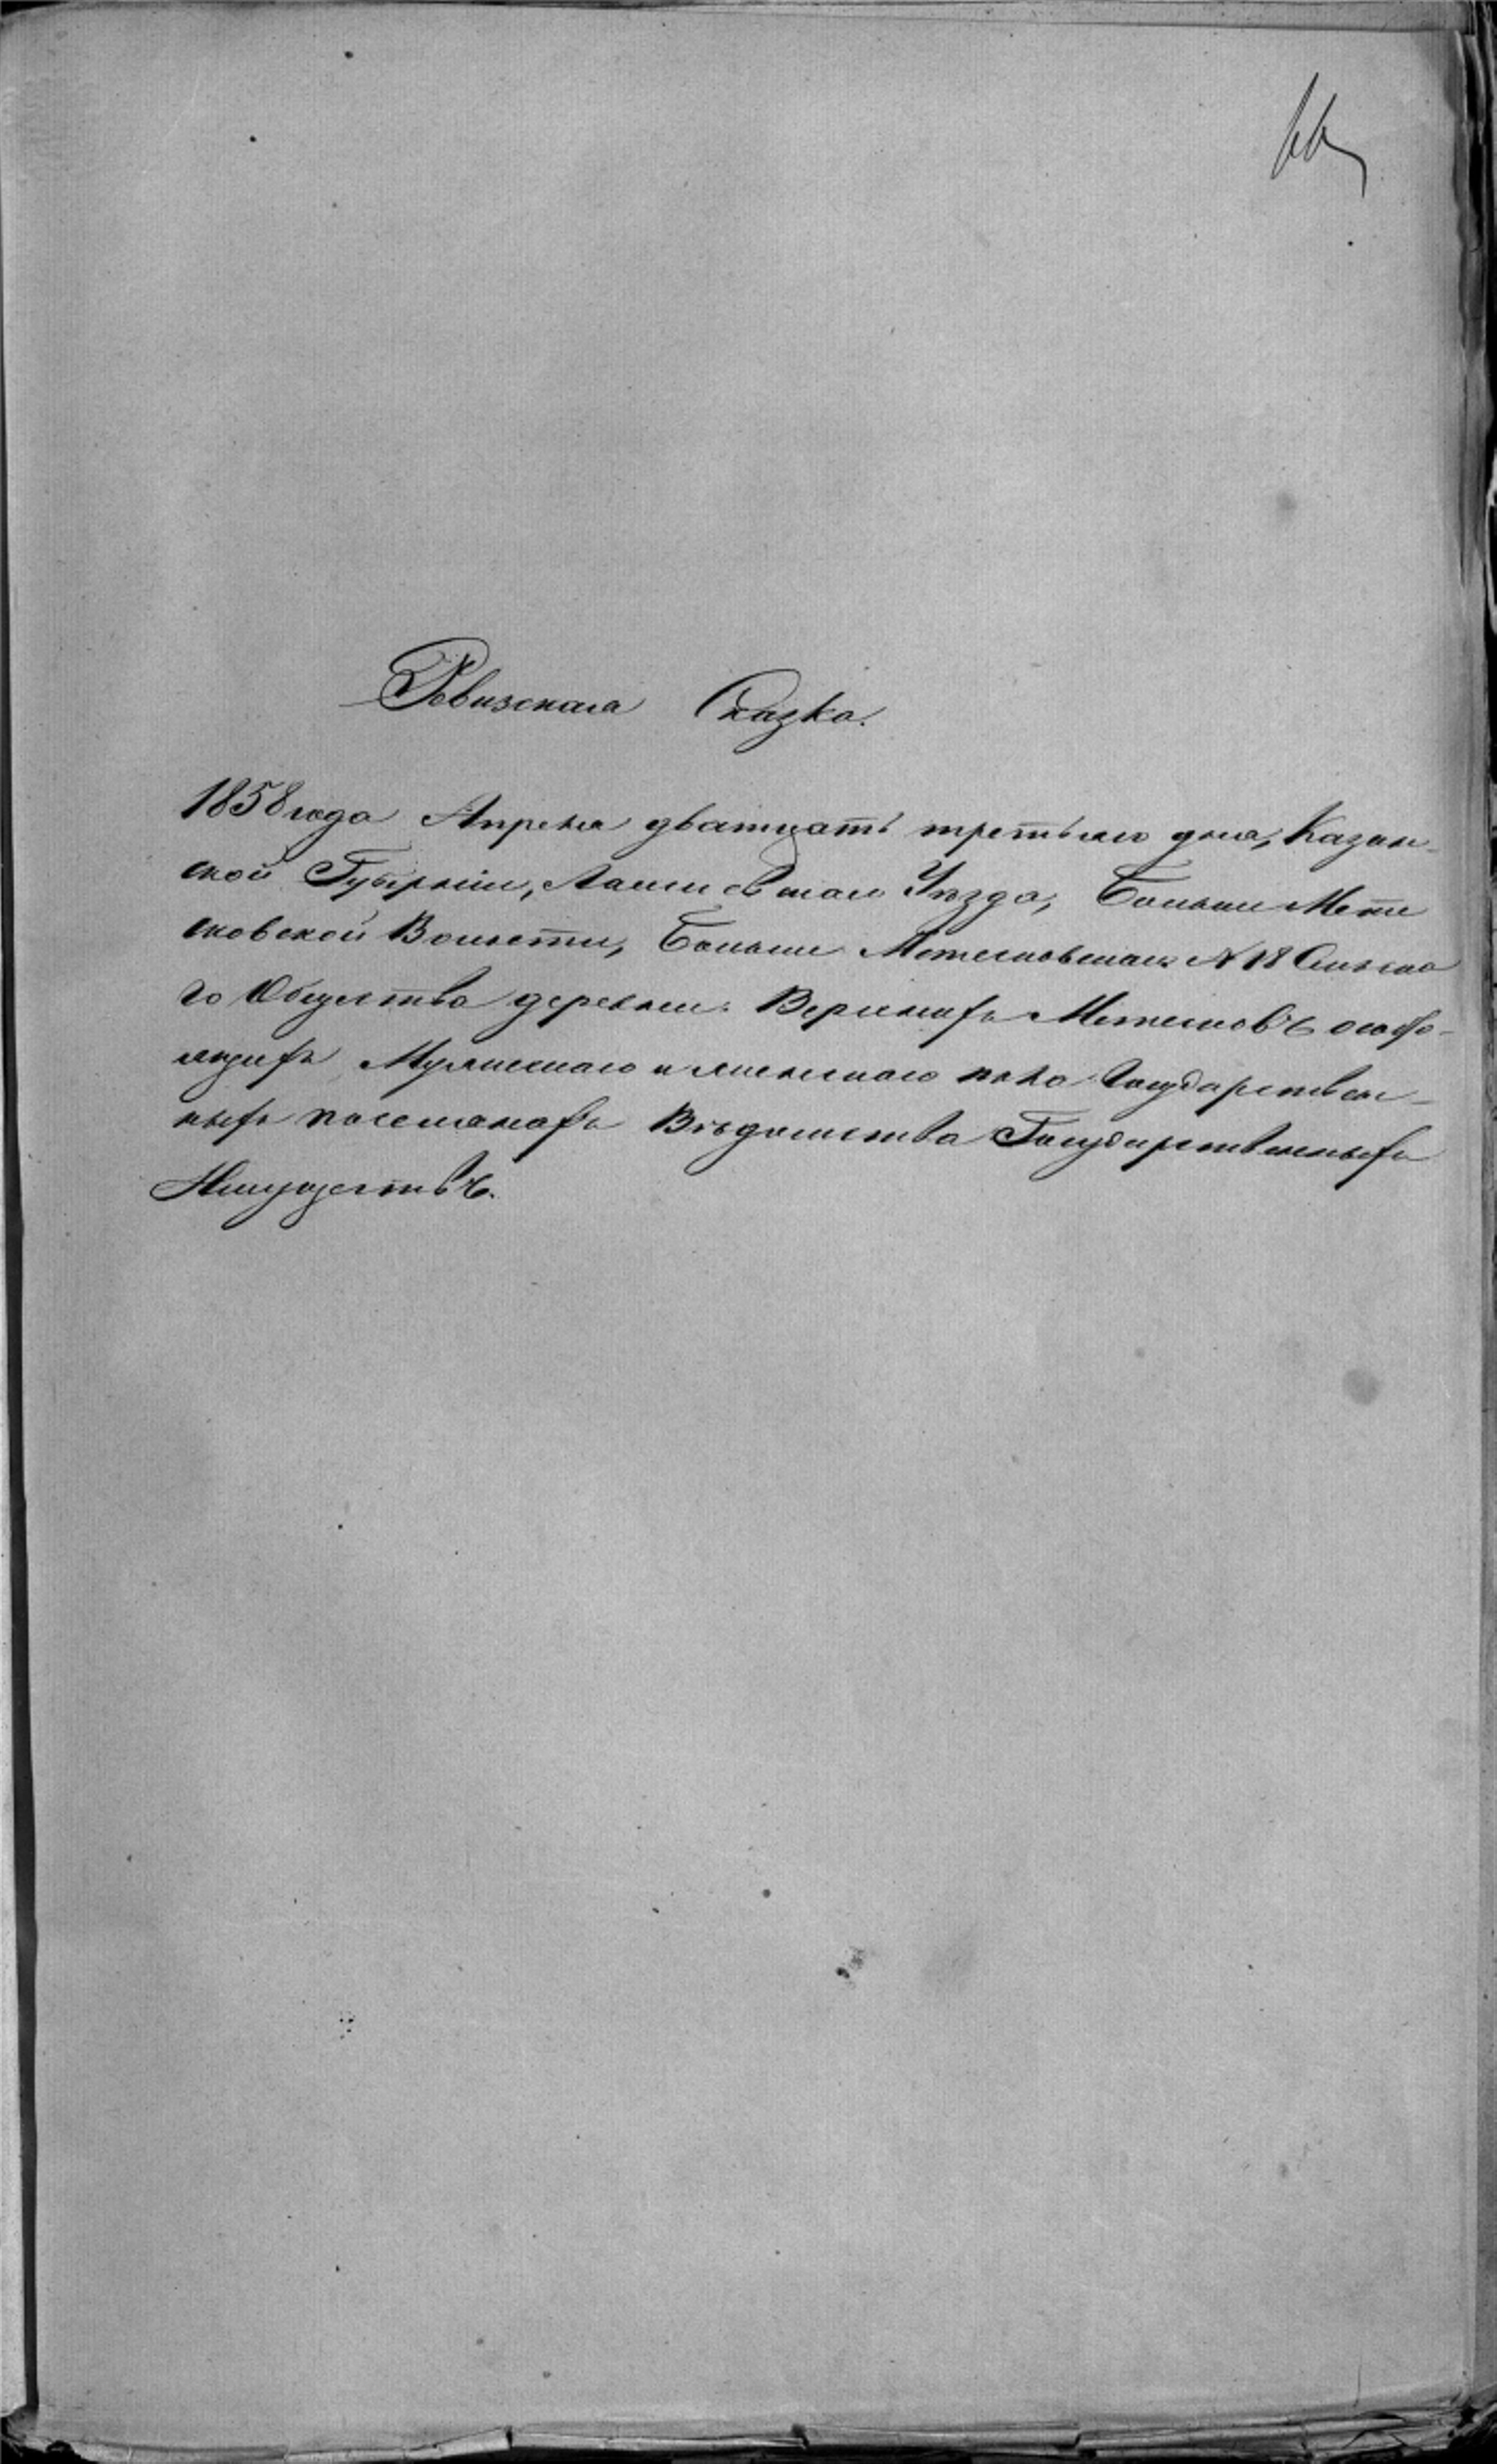 66
Ревизская Сказка.
1858 года Апреля дватцать третьяго дня, Казан-
ской Губерніи, Лаишевскаго Уѣзда, Больше Мете
сковской Волости, Больше Метесковскаго N 18 Сельска
го Общества деревни Верхнихъ Метесковъ о состо-
ящихъ Мужескаго и женскаго пола Государствен-
ныхъ поселянахъ Вѣдомства Государственныхъ
Имуществъ.